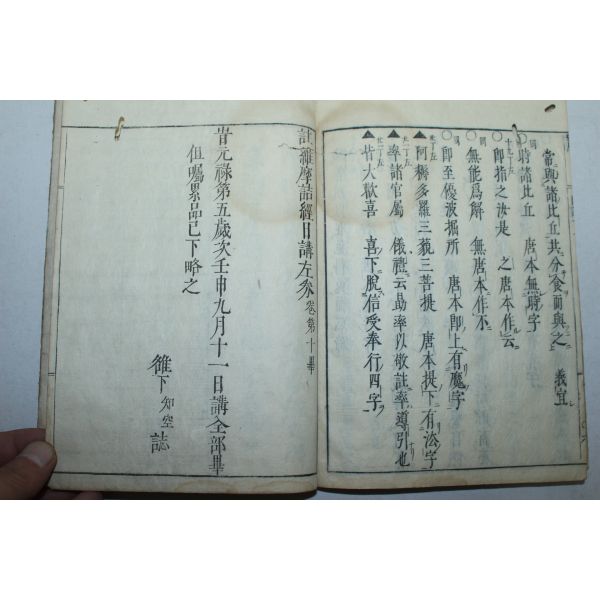 常與諸比丘共分食而與之 義宜
時諸比丘 唐本無時字
即指之汝是 之唐本作云
無能爲解 無唐本作不
即至優波掘所 唐本即上有魔字
阿耨多羅三藐三菩提 唐本提下有法字
率諸官屬 儀禮云勗率以敬註率導引也
皆大歡喜 喜下脫信受奉行四字
註維摩詰經日講左券 卷第十畢
旹元祿第五歲次壬申九月十一日講全部畢
但囑累品已下略之
雒下 知空誌